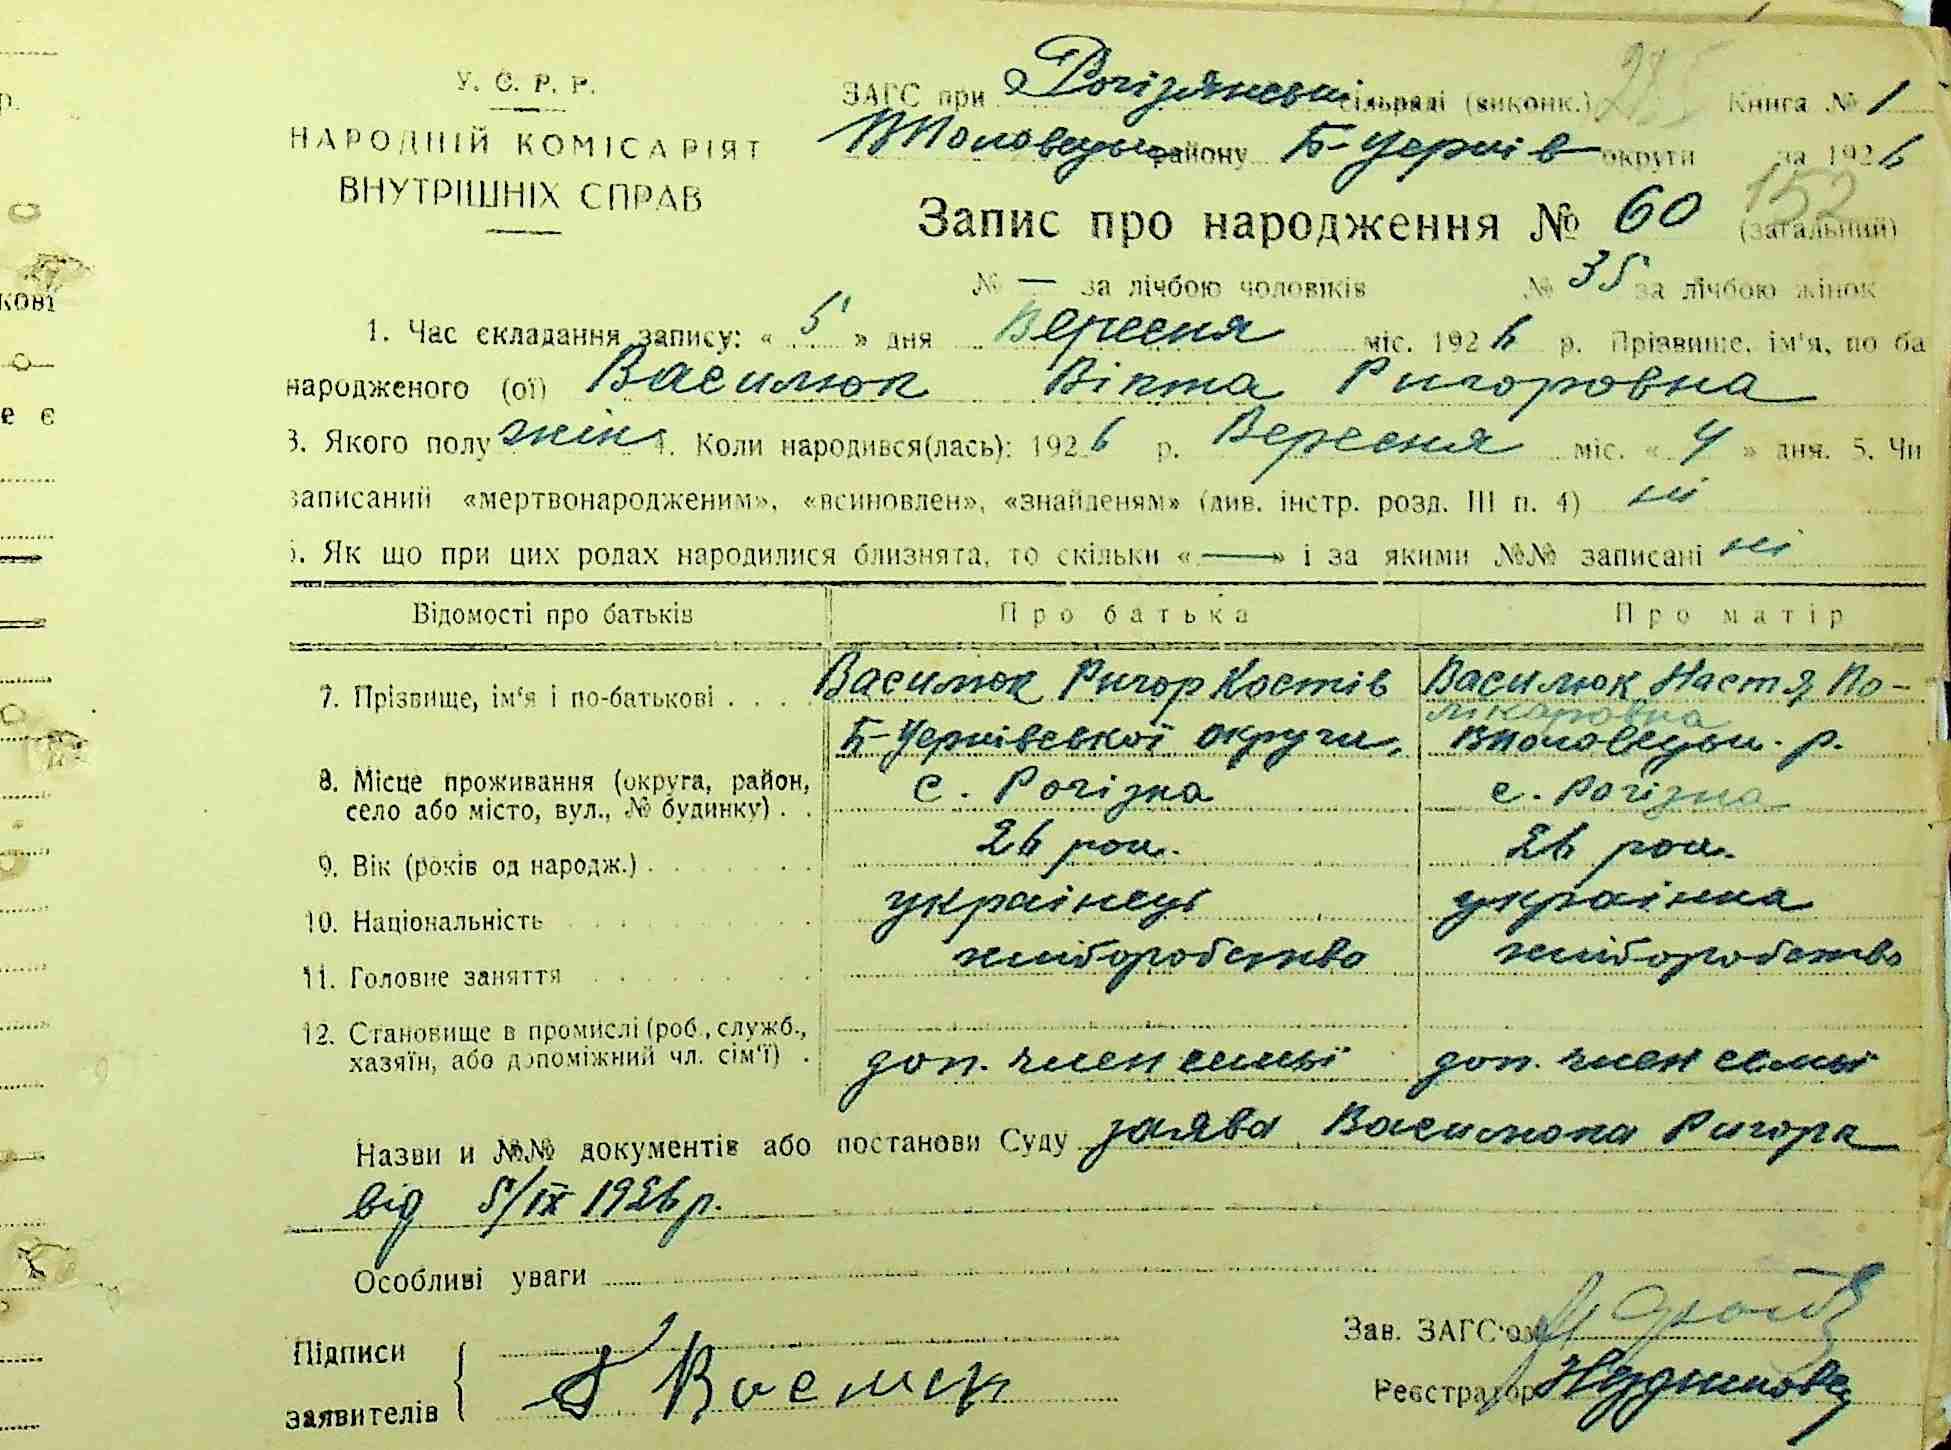 У. С. Р. Р.
НАРОДНІЙ КОМІСАРІЯТ
ВНУТРІШНІХ СПРАВ
285
ЗАГС при Рогізнянськ. сільраді (виконк.) Книга № 1
Володовецьк. району Б-Церків округи за 1926
Запис про народження № 60 (загальний)
152
№ — за лічбою чоловіків № 35 за лічбою жінок
1. Час складання запису: « 5 » дня Вересня міс. 1926 р. Прізвище, ім'я, по ба
народженого (ої) Василюк Вікта Ригоровна
3. Якого полу жін. 4. Коли народився(лась): 1926 р. Вересня міс. « 4 » дня. 5. Чи
записаний «мертвонародженим», «всиновлен», «знайденям» (див. інстр. розд. III п. 4) ні
6. Як що при цих родах народилися близнята, то скільки « — » і за якими №№ записані ні
Відомості про батьків Про батька Про матір
7. Прізвище, ім'я і по-батькові . . . . Василюк Ригор Костів Василюк Настя По-
лікаровна
Б-Церківської округи, р.
8. Місце проживання (округа, район,
село або місто, вул., № будинку) . . с. Рогізна с. Рогізна
9. Вік (років од народж.) 26 рок. 26 рок.
10. Національність українець українка
11. Головне заняття хліборобство хліборобство
12. Становище в промислі (роб., служб.,
хазяїн, або допоміжний чл. сім'ї) . доп. член семьї доп. член семьї
Назви и №№ документів або постанови Суду заява Василюка Ригора
від 5/IX 1926 р.
Особливі уваги
Зав. ЗАГС'ом
Підписи
заявителів
Реєстратор